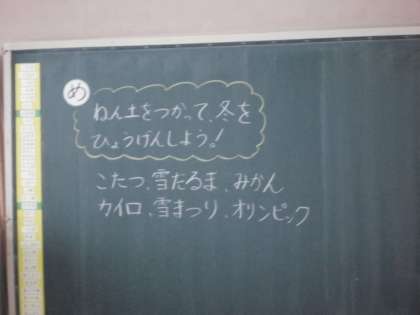 め
ねん土をつかって、冬を
ひょうげんしよう!
こたつ、雪だるま、みかん
カイロ、雪まつり、オリンピック